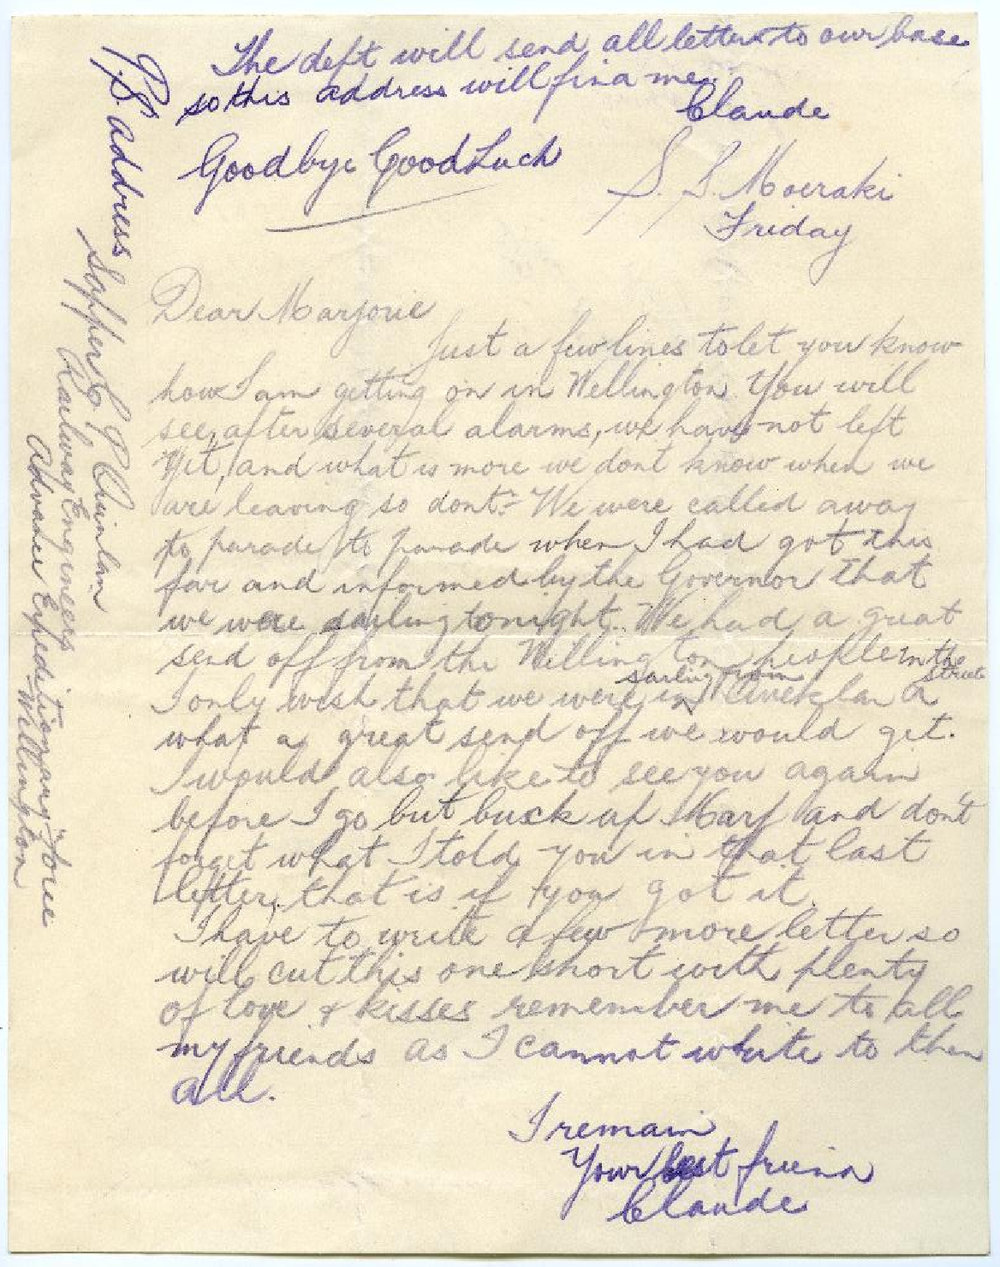 The dept will send all letters to our base
so this address will find me.
Claude
Goodbye Good Luck
S. S. Moeraki
Friday
Dear Marjorie
Just a few lines to let you know
how I am getting on in Wellington You will
see, after several alarms, we have not left
yet, and what is more we dont know when we
are leaving so dont:- We were called away
to parade to parade when I had got this
far and informed by the Governor that
we were sailing tonight. We had a great
send off from the Wellington people in the street
I only wish that we were sailing from in Auckland
what a great send off we would get.
I would also like to see you again
before I go but buck up Marj and don't
forget what I told you in that last
letter, that is if you got it.
I have to write a few more letter so
will cut this one short with plenty
of love & kisses remember me to all
my friends as I cannot write to them
all.
I remain
Your best friend
Claude
P.S. address
Sapper C P Quinlan
Railway Engineers
Advance Expeditionary Force
Wellington